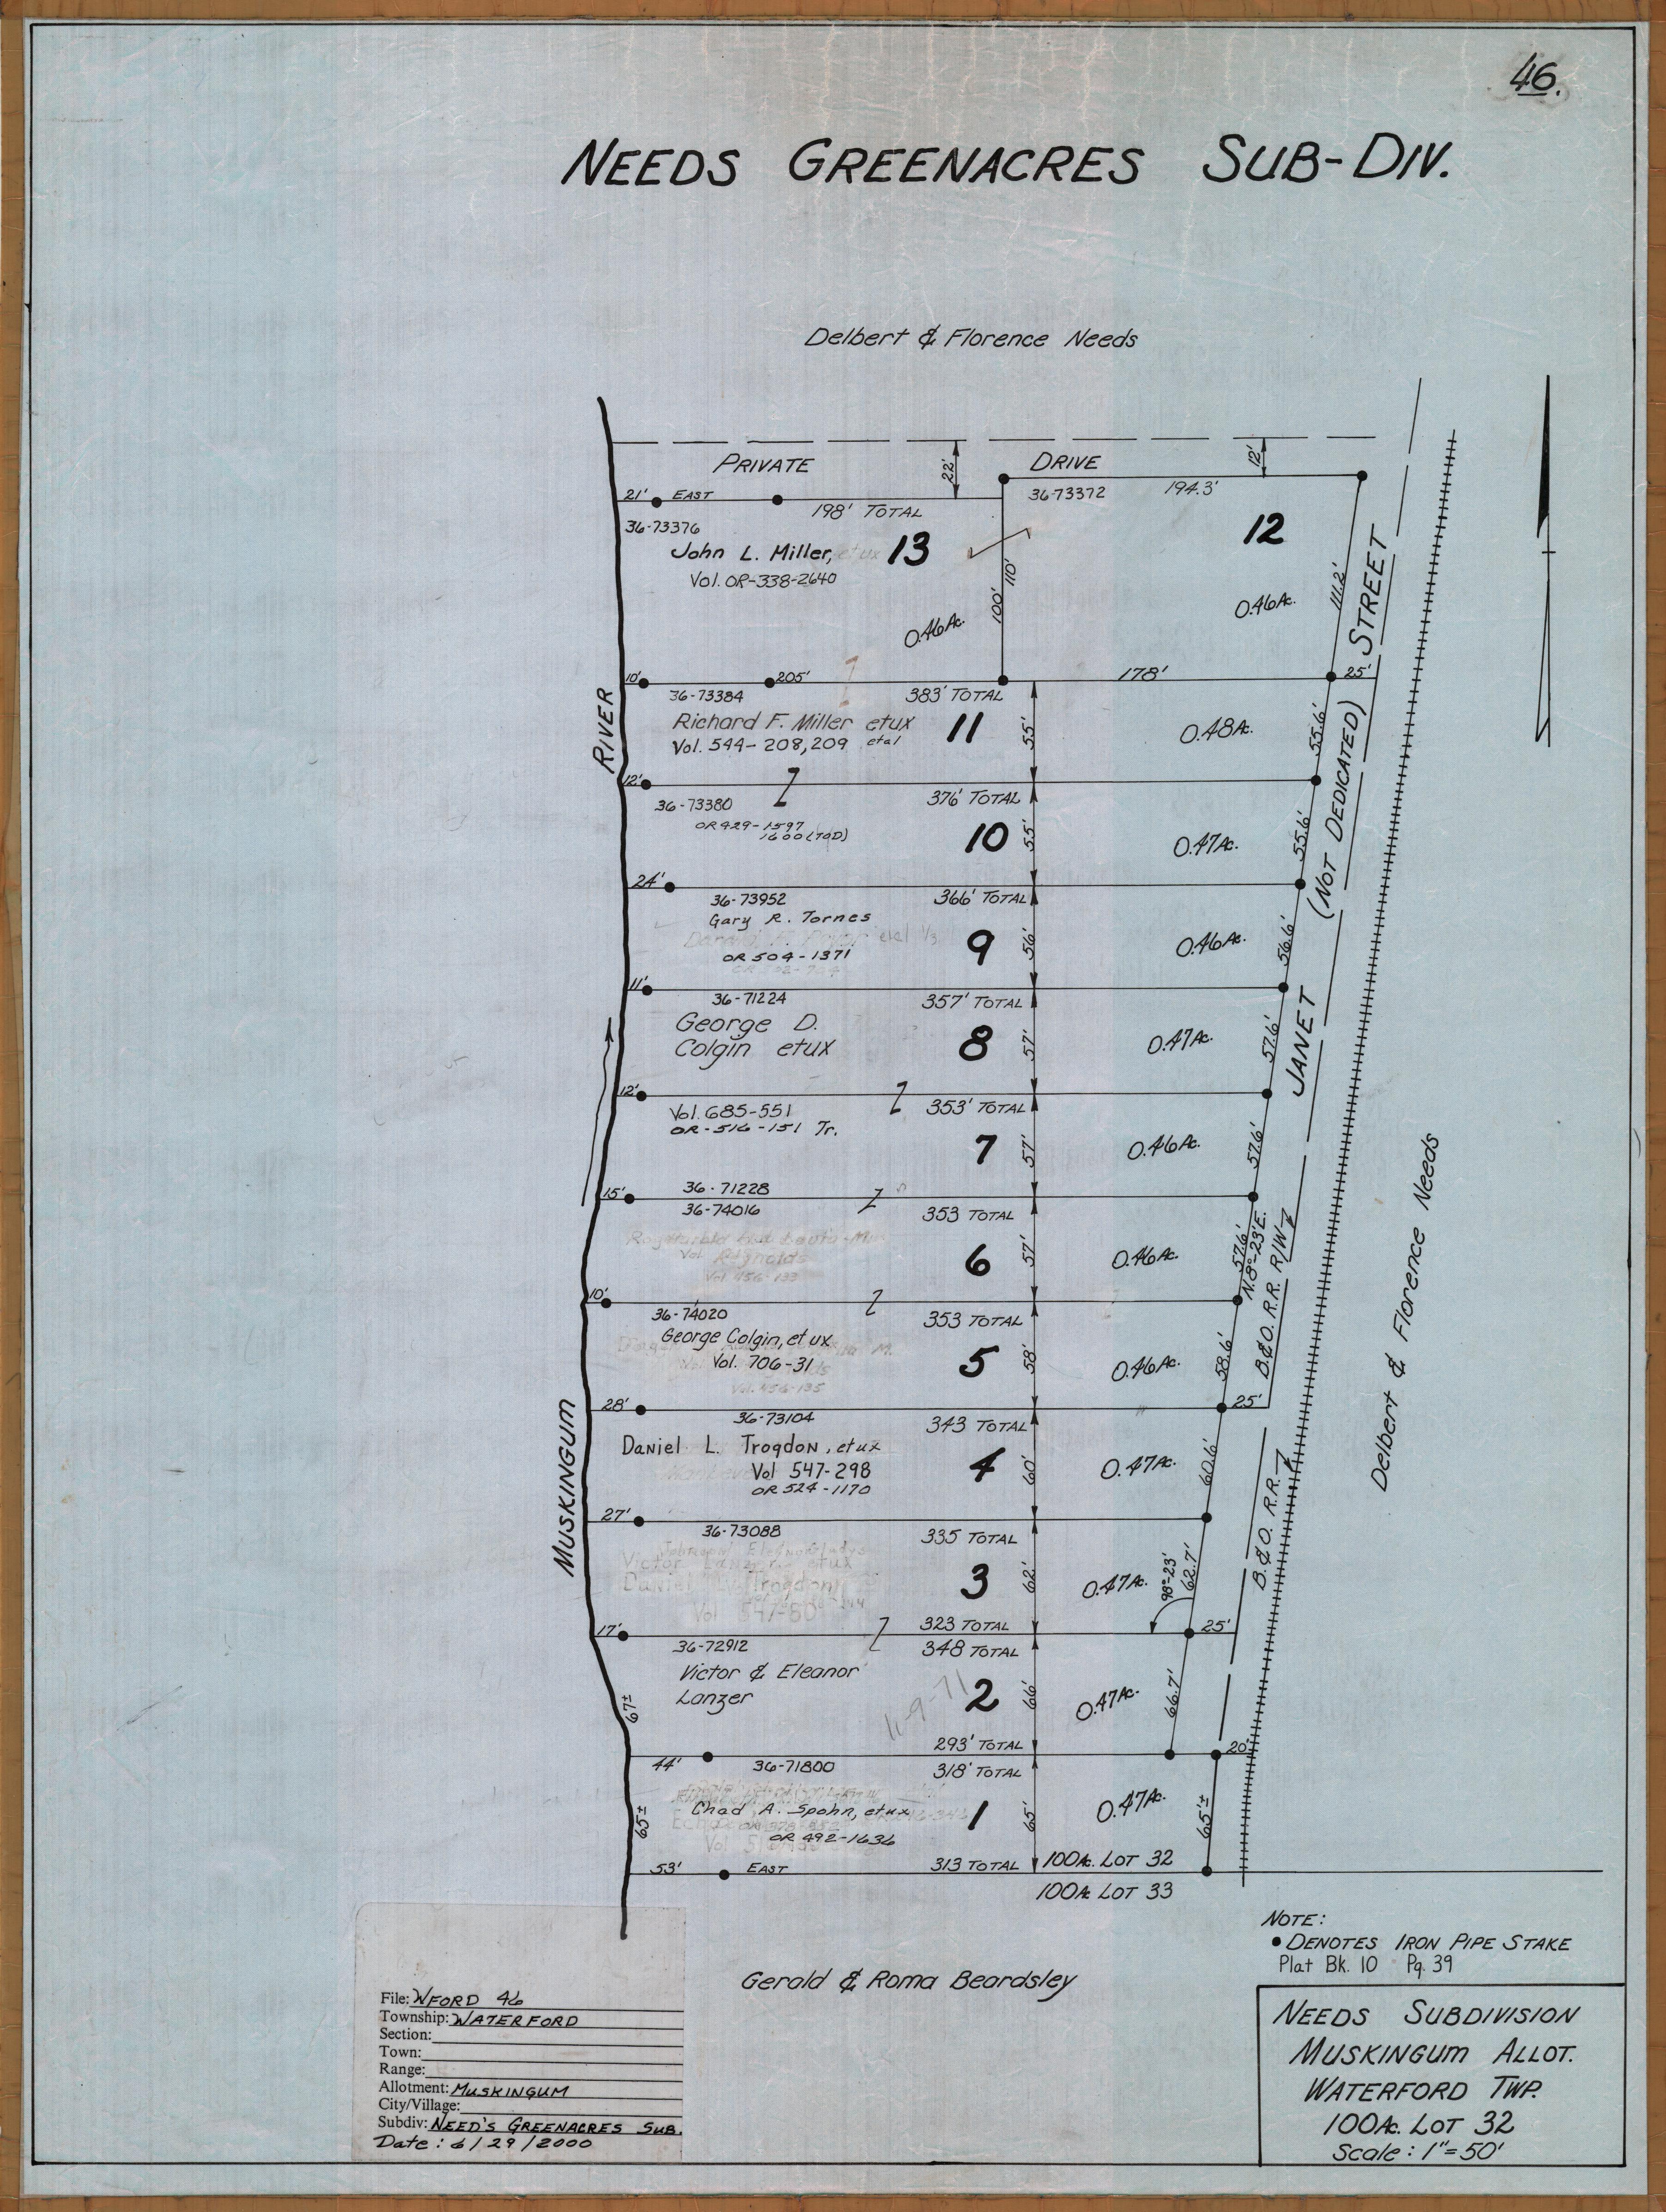 46.
NEEDS GREENACRES SUB-DIV.
Delbert & Florence Needs
PRIVATE DRIVE
22'
12'
21' EAST
198' TOTAL
36-73372 194.3'
36-73376
John L. Miller, et ux 13
Vol. OR-338-2640
12
100' 110'
111.2'
0.46Ac.
0.46Ac.
STREET
10' 205' 178' 25'
36-73384 383' TOTAL
Richard F. Miller etux 11
Vol. 544-208,209 etal
55'
0.48Ac.
55.6'
RIVER
12'
36-73380 376' TOTAL
OR 429-1597
1600 (TOD)
10
55'
0.47Ac.
55.6'
(NOT DEDICATED)
24'
36-73952 366' TOTAL
Gary R. Tornes
etal 1/3
OR 504-1371
9
56'
0.46Ac.
56.6'
11'
36-71224 357' TOTAL
George D.
Colgin etux
8
57'
0.47Ac.
57.6'
JANET
12'
Vol. 685-551 353' TOTAL
OR-516-151 Tr.
7
57'
0.46Ac.
57.6'
15' 36-71228
36-74016 353 TOTAL
Reynolds
Vol. 456-133
6
57'
0.46Ac.
57.6'
N.8°-23'E.
B.&O. R.R. R/W
10'
36-74020 353 TOTAL
George Colgin, et ux
Vol. 706-31
Vol. 456-135
5
58'
0.46Ac.
58.6'
28' 25'
36-73104 343 TOTAL
Daniel L. Trogdon, etux
Vol 547-298
OR 524-1170
4
60'
0.47Ac.
60.6'
B.&O. R.R.
Delbert & Florence Needs
MUSKINGUM
27'
36-73088 335 TOTAL
Victor Lanzer etux
Daniel L. Trogdon
Vol 547-80
3
62'
0.47Ac.
98°-23'
62.7'
323 TOTAL
17' 25'
36-72912 348 TOTAL
Victor & Eleanor
Lanzer
11-9-71
2
66'
0.47Ac.
66.7'
67±
293' TOTAL
20'
44' 36-71800 318' TOTAL
Chad A. Spohn, etux
OR 492-1636
1
65'
0.47Ac.
65'±
65±
53' EAST 313 TOTAL 100Ac. LOT 32
100Ac LOT 33
Gerald & Roma Beardsley
NOTE:
• DENOTES IRON PIPE STAKE
Plat Bk. 10 Pg. 39
NEEDS SUBDIVISION
MUSKINGUM ALLOT.
WATERFORD TWP.
100Ac. LOT 32
Scale: 1"=50'
File: WFORD 46
Township: WATERFORD
Section:
Town:
Range:
Allotment: MUSKINGUM
City/Village:
Subdiv: NEED'S GREENACRES SUB.
Date: 6/29/2000